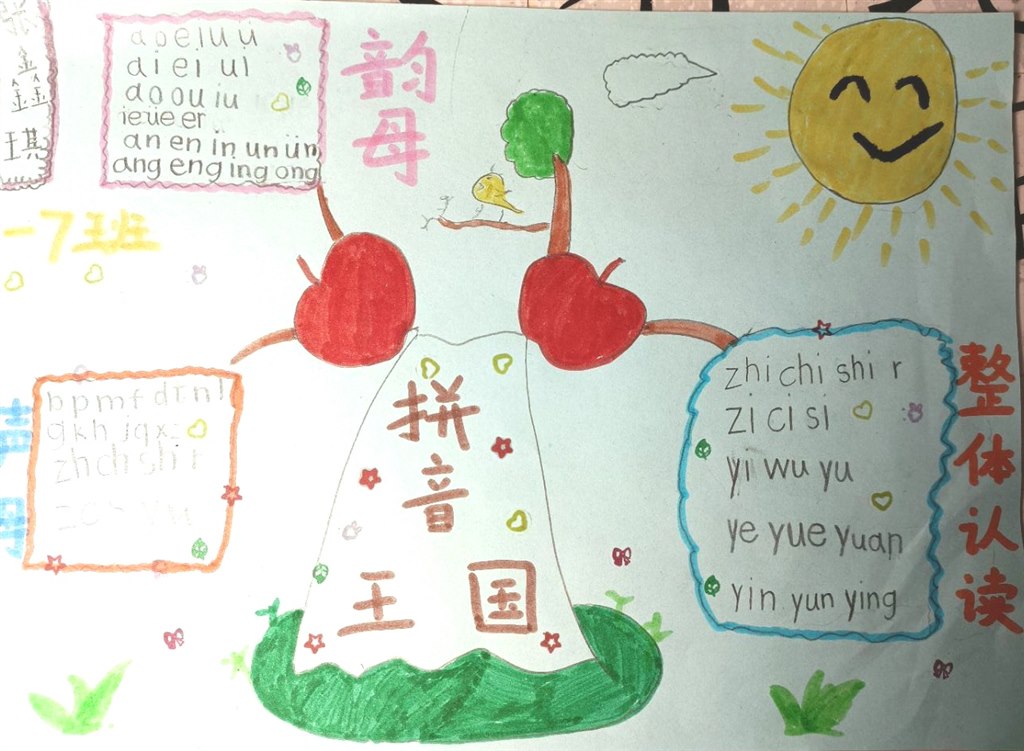 鑫
琪
一7班
韵
母
a o e i u ü
ai ei ui
ao ou iu
ie üe er
an en in un ün
ang eng ing ong
声
母
b p m f d t n l
g k h j q x
zh ch sh r
z c s y w
拼
音
王 国
zhi chi shi r
zi ci si
yi wu yu
ye yue yuan
yin yun ying
整
体
认
读